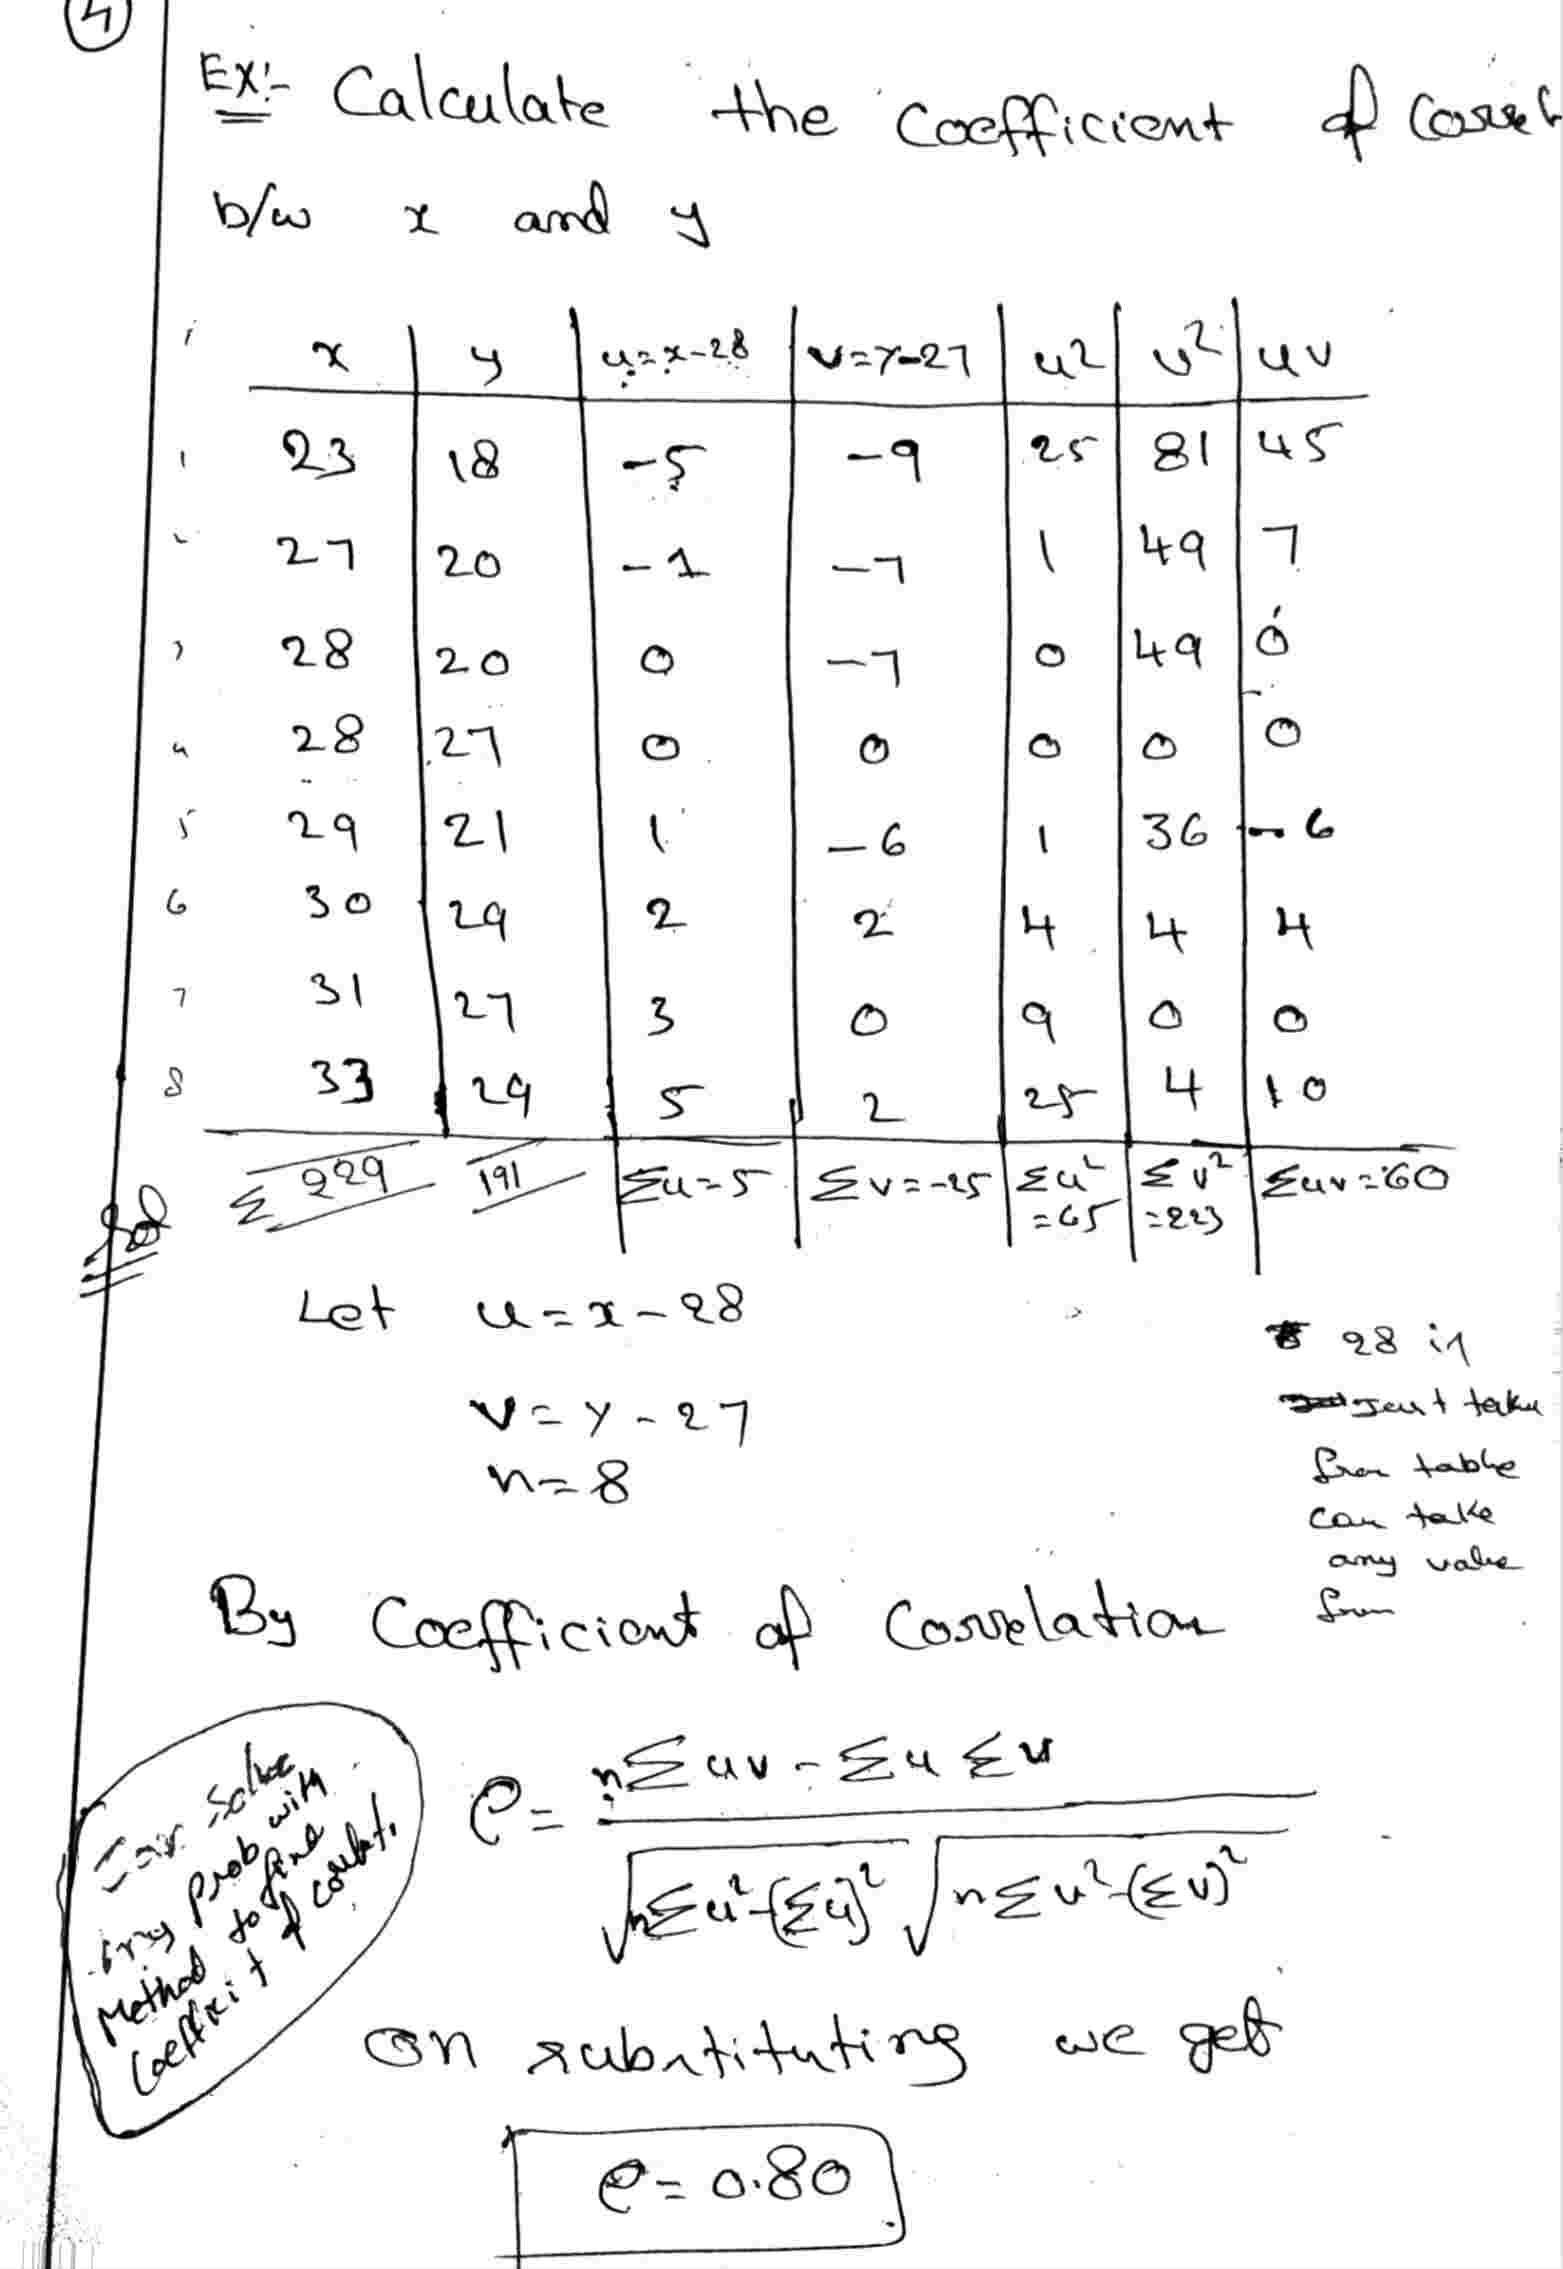 4
Ex:- Calculate the Coefficient of Correl
b/w x and y
x y u=x-28 v=y-27 u² v² uv
1 23 18 -5 -9 25 81 45
2 27 20 -1 -7 1 49 7
3 28 20 0 -7 0 49 0
4 28 27 0 0 0 0 0
5 29 21 1 -6 1 36 -6
6 30 29 2 2 4 4 4
7 31 27 3 0 9 0 0
8 33 29 5 2 25 4 10
Σ 229 191 Σu=5 Σv=-25 Σu²=65 Σv²=223 Σuv=60
Sol
Let u=x-28
v=y-27
n=8
28 is
just take
from table
can take
any value
from
By Coefficient of Correlation
solve
prob with
Method to find
Coefficit of correlati
ρ= nΣuv-ΣuΣv / √nΣu²-(Σu)² √nΣv²-(Σv)²
on substituting we get
ρ=0.80